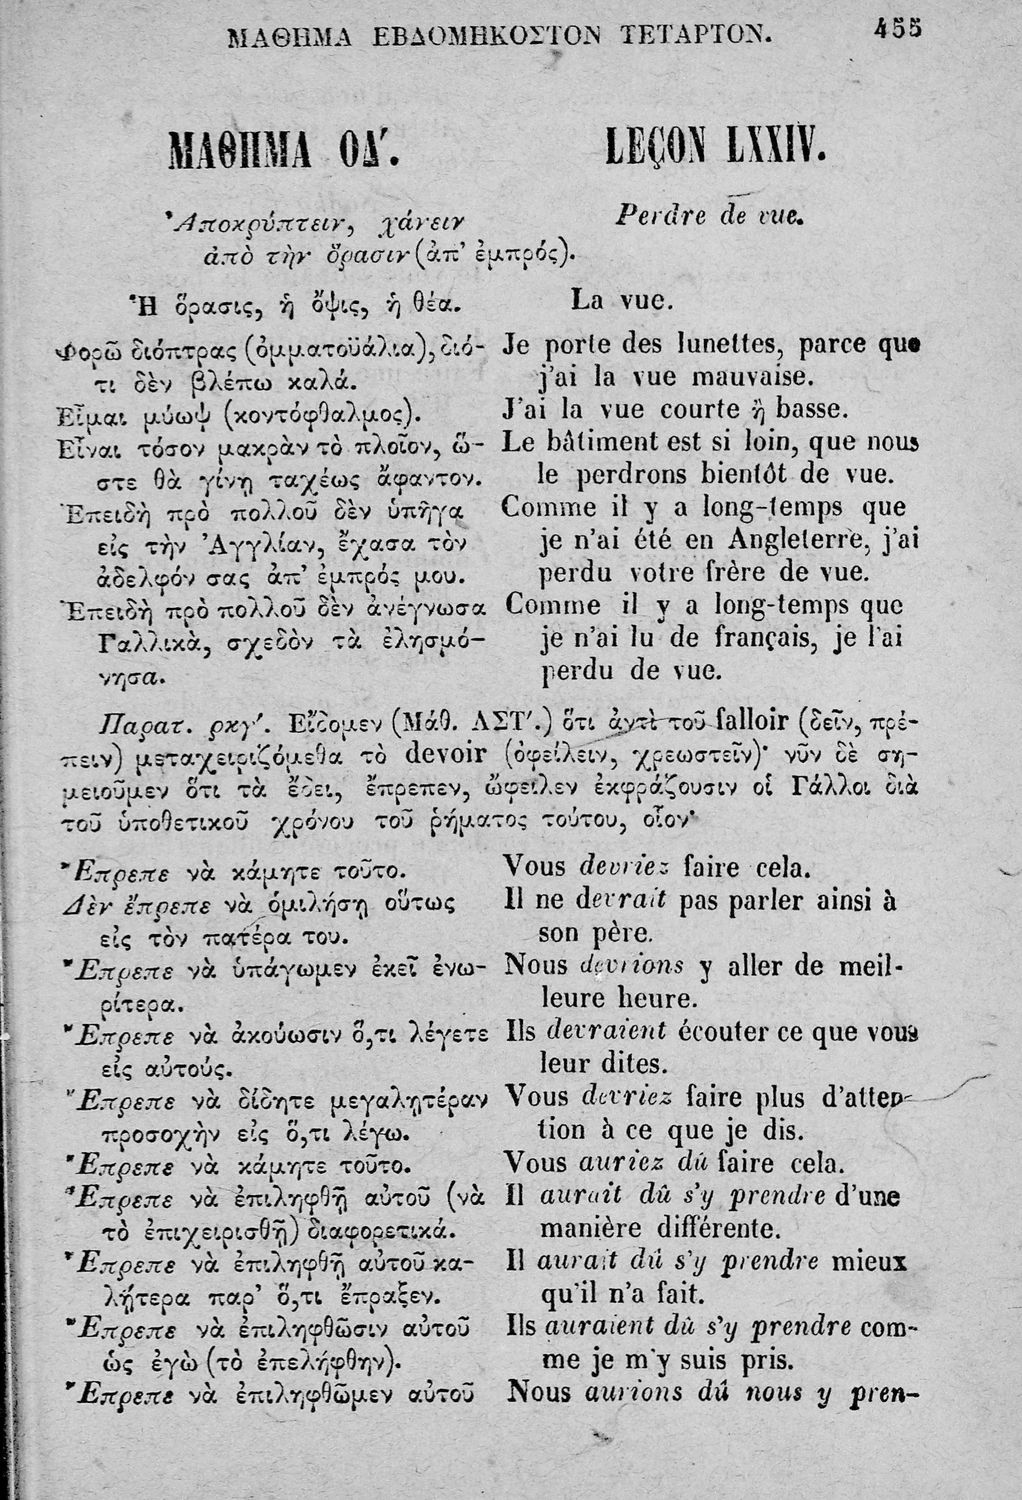 ΜΑΘΗΜΑ ΕΒΔΟΜΗΚΟΣΤΟΝ ΤΕΤΑΡΤΟΝ. 455
ΜΑΘΗΜΑ ΟΔ΄. LEÇON LXXIV.
Ἀποκρύπτειν, χάνειν Perdre de vue.
ἀπὸ τὴν ὅρασιν (ἀπ’ ἐμπρός).
Ἡ ὅρασις, ἡ ὄψις, ἡ θέα. La vue.
Φορῶ διόπτρας (ὀμματοϋάλια), διό- Je porte des lunettes, parce que
τι δὲν βλέπω καλά. j'ai la vue mauvaise.
Εἶμαι μύωψ (κοντόφθαλμος). J'ai la vue courte ἢ basse.
Εἶναι τόσον μακρὰν τὸ πλοῖον, ὥ- Le bâtiment est si loin, que nous
στε θὰ γίνῃ ταχέως ἄφαντον. le perdrons bientôt de vue.
Ἐπειδὴ πρὸ πολλοῦ δὲν ὑπῆγα Comme il y a long-temps que
εἰς τὴν Ἀγγλίαν, ἔχασα τὸν je n'ai été en Angleterre, j'ai
ἀδελφόν σας ἀπ’ ἐμπρός μου. perdu votre frère de vue.
Ἐπειδὴ πρὸ πολλοῦ δὲν ἀνέγνωσα Comme il y a long-temps que
Γαλλικὰ, σχεδὸν τὰ ἐλησμό- je n'ai lu de français, je l'ai
νησα. perdu de vue.
Παρατ. ρκγ΄. Εἴδομεν (Μάθ. ΛΣΤ΄.) ὅτι ἀντὶ τοῦ falloir (δεῖν, πρέ-
πειν) μεταχειριζόμεθα τὸ devoir (ὀφείλειν, χρεωστεῖν)· νῦν δὲ ση-
μειοῦμεν ὅτι τὰ ἔδει, ἔπρεπεν, ὤφειλεν ἐκφράζουσιν οἱ Γάλλοι διὰ
τοῦ ὑποθετικοῦ χρόνου τοῦ ῥήματος τούτου, οἷον·
Ἔπρεπε νὰ κάμητε τοῦτο. Vous devriez faire cela.
Δὲν ἔπρεπε νὰ ὁμιλήσῃ οὕτως Il ne devrait pas parler ainsi à
εἰς τὸν πατέρα του. son père.
Ἔπρεπε νὰ ὑπάγωμεν ἐκεῖ ἐνω- Nous devrions y aller de meil-
ρίτερα. leure heure.
Ἔπρεπε νὰ ἀκούωσιν ὅ,τι λέγετε Ils devraient écouter ce que vous
εἰς αὐτούς. leur dites.
Ἔπρεπε νὰ δίδητε μεγαλητέραν Vous devriez faire plus d'atten-
προσοχὴν εἰς ὅ,τι λέγω. tion à ce que je dis.
Ἔπρεπε νὰ κάμητε τοῦτο. Vous auriez dû faire cela.
Ἔπρεπε νὰ ἐπιληφθῇ αὐτοῦ (νὰ Il aurait dû s'y prendre d'une
τὸ ἐπιχειρισθῇ) διαφορετικά. manière différente.
Ἔπρεπε νὰ ἐπιληφθῇ αὐτοῦ κα- Il aurait dû s'y prendre mieux
λήτερα παρ’ ὅ,τι ἔπραξεν. qu'il n'a fait.
Ἔπρεπε νὰ ἐπιληφθῶσιν αὐτοῦ Ils auraient dû s'y prendre com-
ὡς ἐγὼ (τὸ ἐπελήφθην). me je m'y suis pris.
Ἔπρεπε νὰ ἐπιληφθῶμεν αὐτοῦ Nous aurions dû nous y pren-